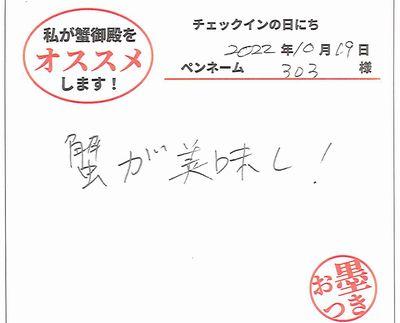 私が蟹御殿を
オススメ
します！
チェックインの日にち
2022年10月19日
ペンネーム 303 様
蟹が美味し!
お墨
つき